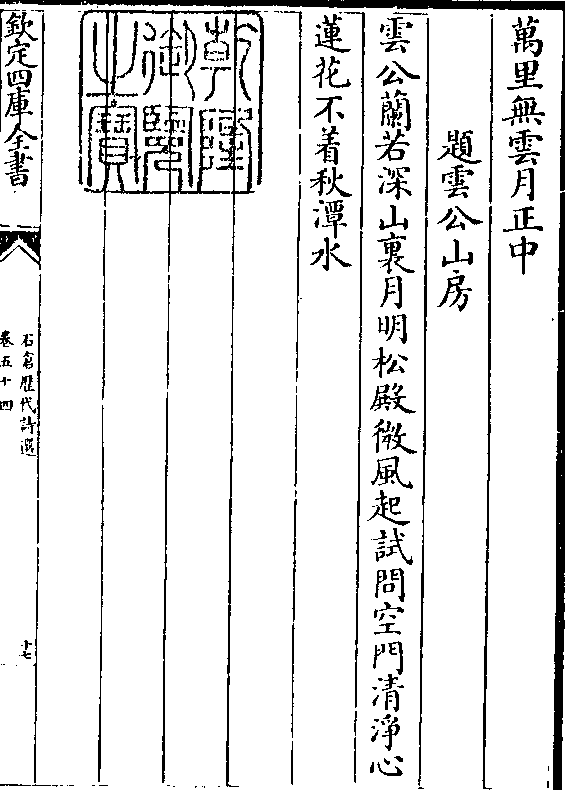 萬里無雲月正中
題雲公山房
雲公蘭若深山裏月明松殿微風起試問空門清淨心
蓮花不着秋潭水
乾隆御覽之寶
欽定四庫全書
石倉歷代詩選
卷五十四
十七